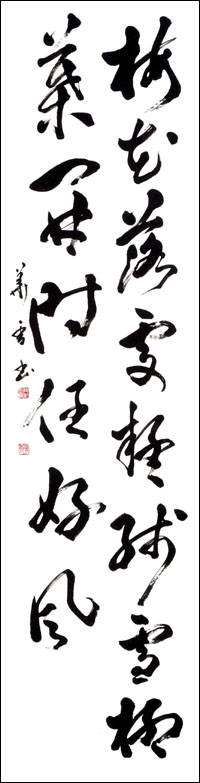 梅花落處疑殘雪柳
葉開時任好風